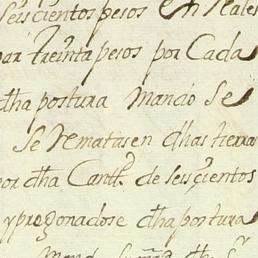 seiscientos pesos En Reales
par treinta pesos por Cada
dha postura Mando Se
Se Rematasen dhas tierra
por dha Cantd. de seiscientos
y pregonadose dha postura
Mand dh